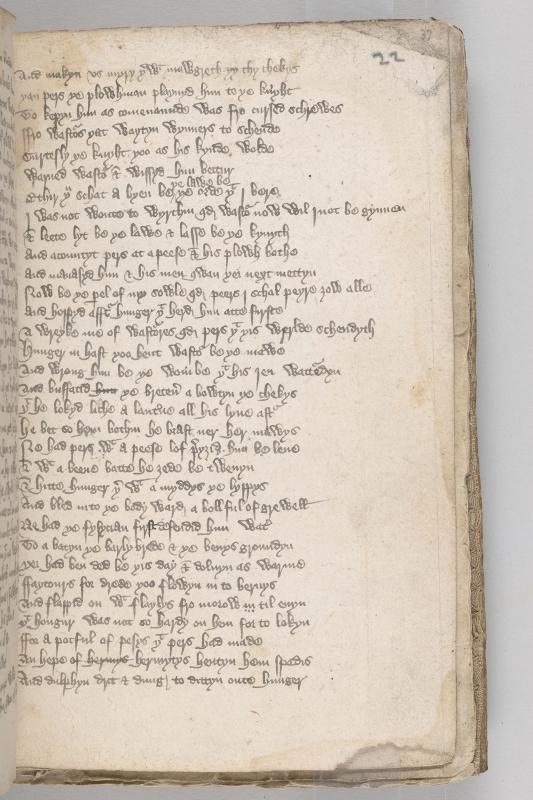 37
22
And makyn us myry þ wt mawgreth yy thy chekys
yan pers ye plowhman playnyd hym to ye knyht
To kepyn hym as comenaunde was fro cursed schrewes
ffro wastors yat waytyn wynners to schende
Curtesly ye knyht yoo as his kynde wolde
Warned wastor & wissyd hym bettir
Ethir yu schat a byen be ye ordr yt I bere
ye lawe be
I was not wonte to wyrchyn qd wastor now wil I not be gynnen
& leete lyt be ye lawe & lasse be ye knyth
And acountyt pers at a peese & his plowh bothe
And manasyd hym & his men qwan yei next mettyn
Now be ye pel of my sowle qd peers I schal peyre zow alle
And houpyd aftir hunger yt herd hym atte firste
A wreyke me of wastores qd pers yt yis werlde schendyth
Hunger in hast yoo hent wastor be ye mawe
And wrong hym be ye wombe yt his yen watteryn
And buffatid hym ye bretener a bowtyn ye chekys
yt he lokyd liche a lanterne all his lyve aftir
He bet so hem bothin he brast ner her mawys
Ne had pers wt a peese lof preyzid hym be leue
& wt a beene batte he zede be twenyn
& hitte hunger yr wt a myddys ye lyppys
And bled in to ye body ward a boll ful of grewell
Ne had ye fysician first defendid hym watir
To a batyn ye barly brede & ye benys groundyn
yei had ben ded be yis day & dolvyn as warme
ffaytours for drede yoo flowyn in to bernys
And flappid on wt flaylys fro morow til evyn
yt hongur was not so hardy on hem for to lokyn
ffor a potful of pesys yt pers had made
An hepe of hermys hermytys hentyn hem spadis
And dulphyn drit & dung to dittyn oute hunger